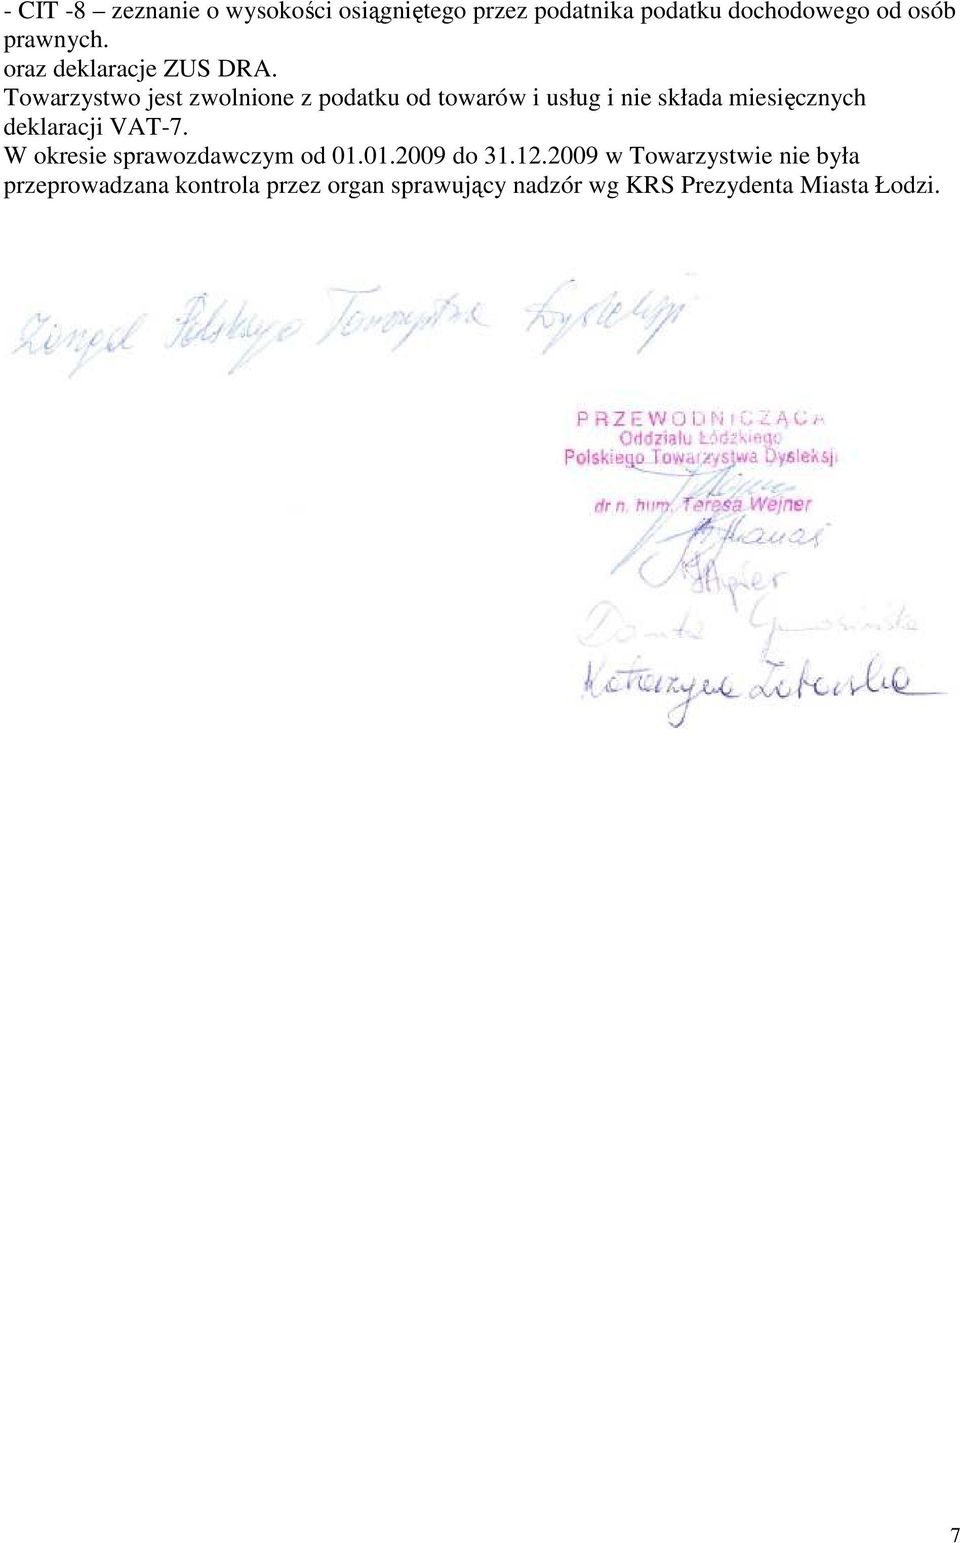 - CIT -8 – zeznanie o wysokości osiągniętego przez podatnika podatku dochodowego od osób
prawnych.
oraz deklaracje ZUS DRA.
Towarzystwo jest zwolnione z podatku od towarów i usług i nie składa miesięcznych
deklaracji VAT-7.
W okresie sprawozdawczym od 01.01.2009 do 31.12.2009 w Towarzystwie nie była
przeprowadzana kontrola przez organ sprawujący nadzór wg KRS Prezydenta Miasta Łodzi.
Zarząd Polskiego Towarzystwa Dysleksji
PRZEWODNICZĄCA
Oddziału Łódzkiego
Polskiego Towarzystwa Dysleksji
dr n. hum. Teresa Wejner
Danuta
Katarzyna
7